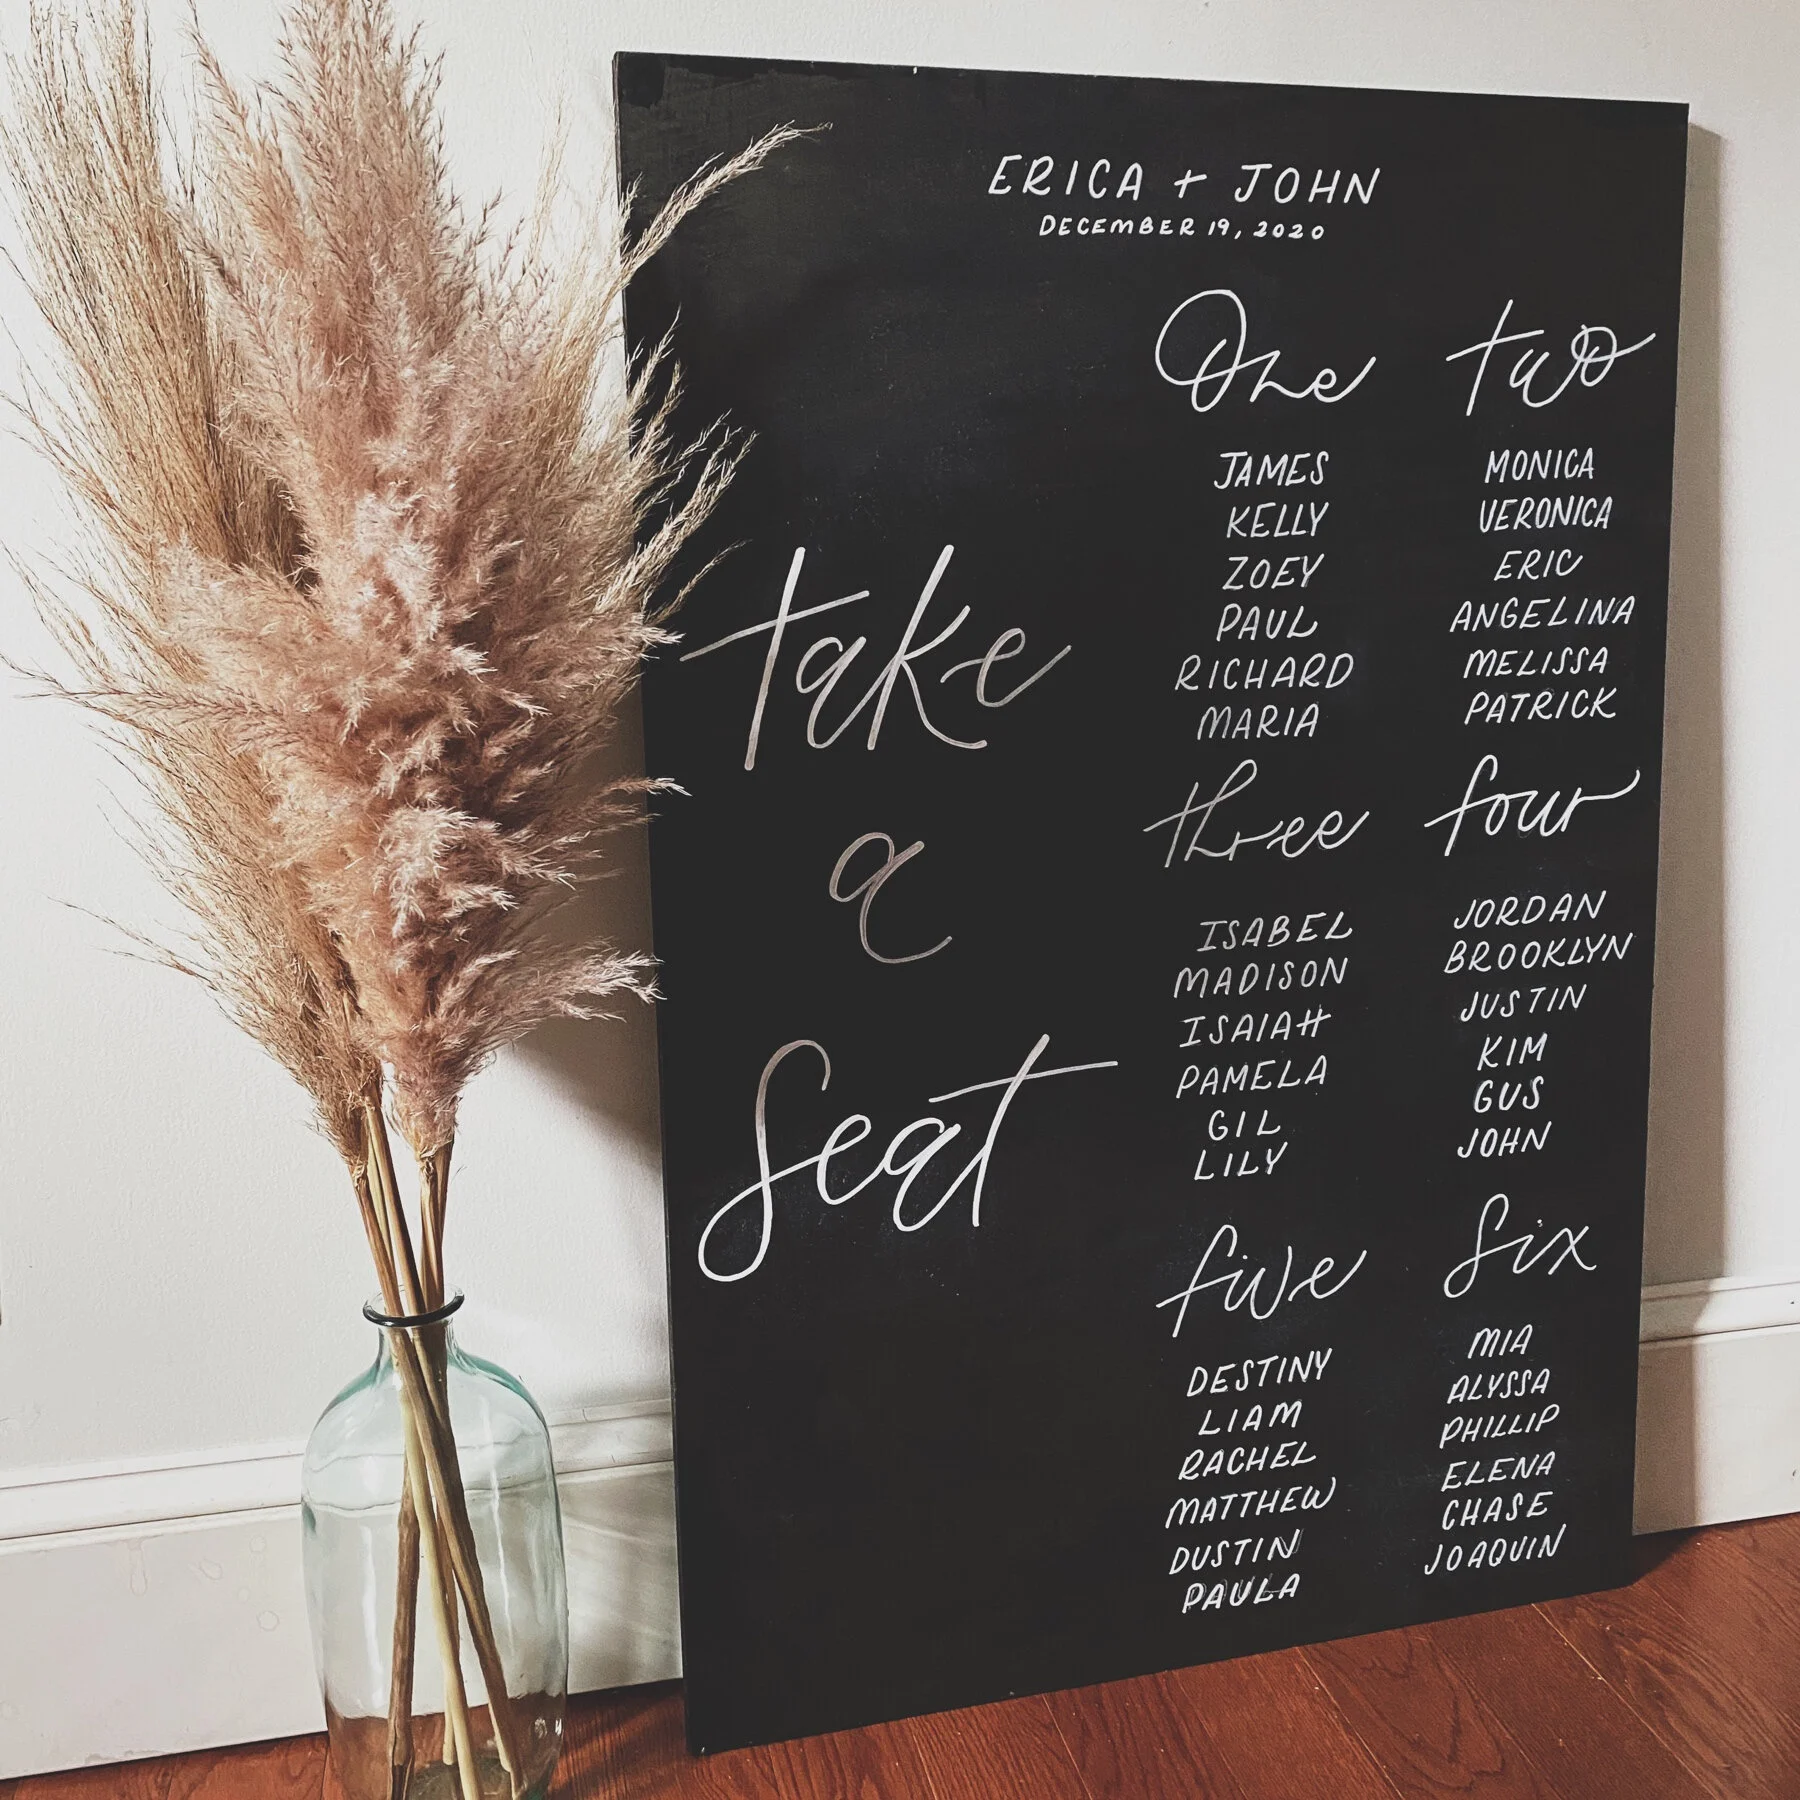 ERICA + JOHN
DECEMBER 19, 2020
take
a
seat
One
JAMES
KELLY
ZOEY
PAUL
RICHARD
MARIA
two
MONICA
VERONICA
ERIC
ANGELINA
MELISSA
PATRICK
three
ISABEL
MADISON
ISAIAH
PAMELA
GIL
LILY
four
JORDAN
BROOKLYN
JUSTIN
KIM
GUS
JOHN
five
DESTINY
LIAM
RACHEL
MATTHEW
DUSTIN
PAULA
six
MIA
ALYSSA
PHILLIP
ELENA
CHASE
JOAQUIN